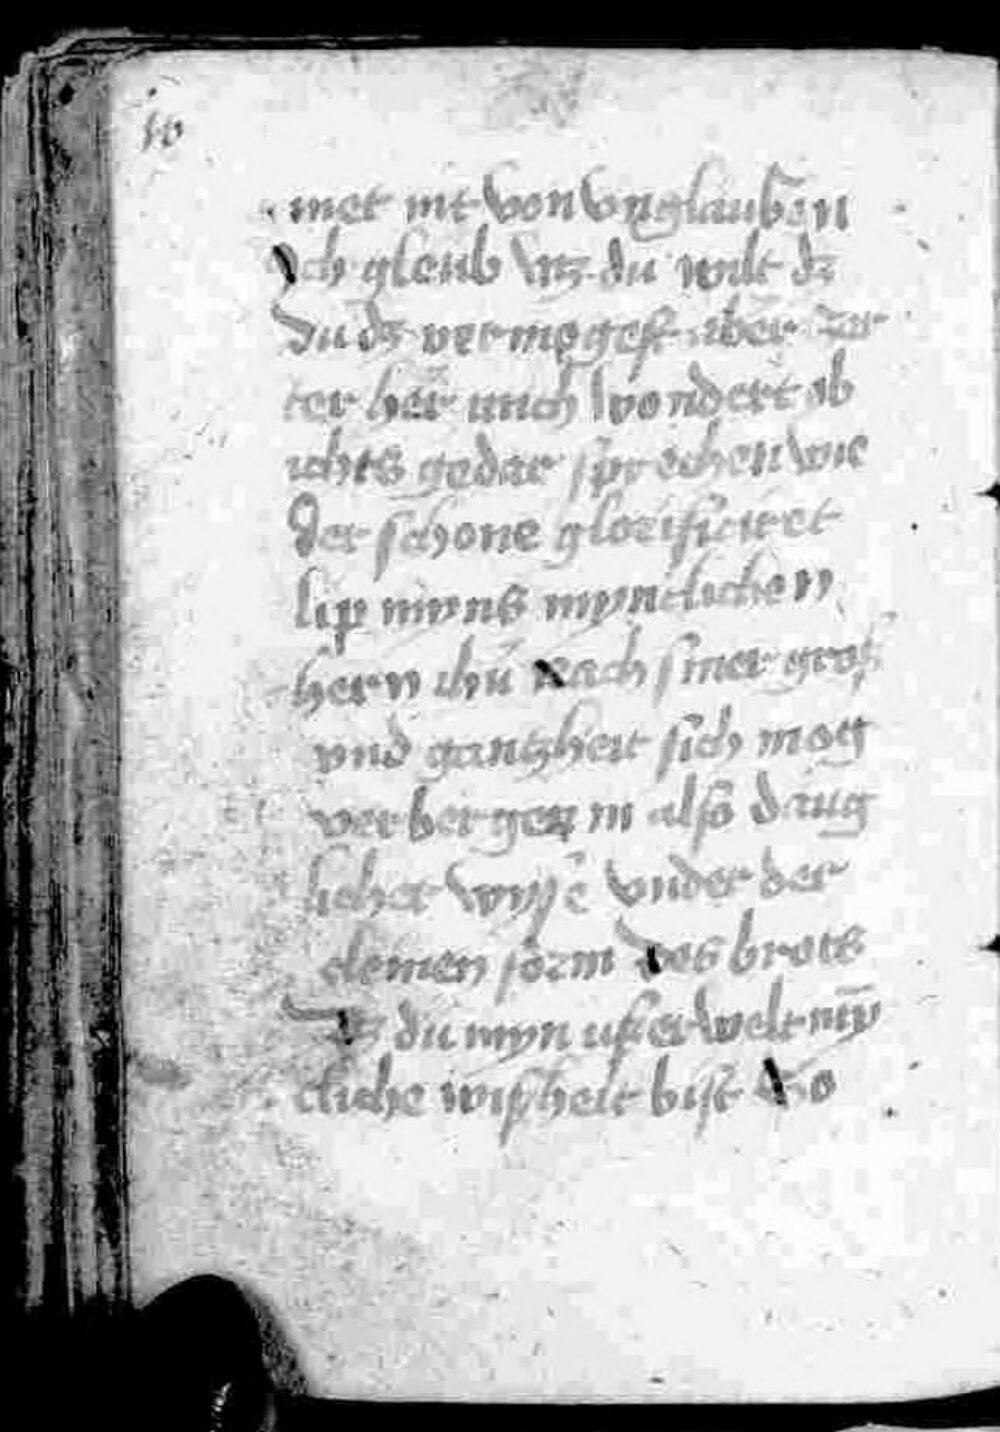 10
met nit von vnglauben
Ich gleub wz du wilt dz
du dz vermogest aber zar
ter her mich wondert ob
ichts gedar sprechen wie
der schone glorificiret
lip myns mynclichen
hern ihũ nach siner groß
vnd gantzheit sich mog
verbergen in also
licher wyse vnder der
cleinen form des brots
dz du myn user welt myn̄
cliche wißheit bist So